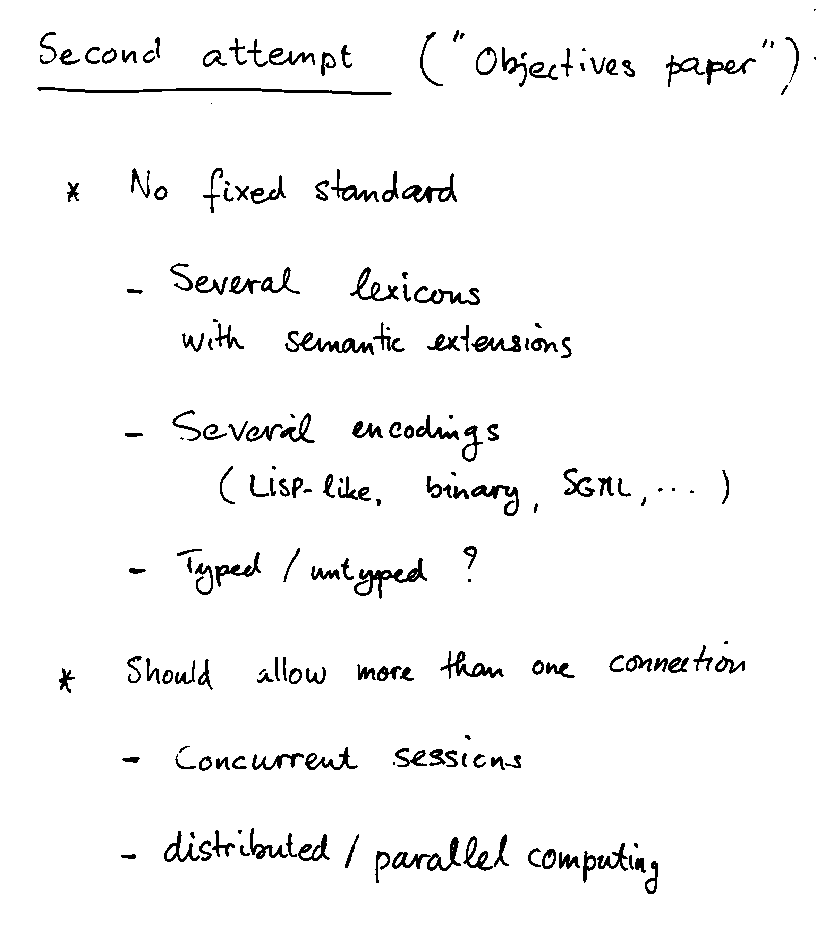 Second attempt ("Objectives paper")
* No fixed standard
- Several lexicons
with semantic extensions
- Several encodings
(Lisp-like, binary, SGML, ... )
- Typed / untyped ?
* Should allow more than one connection
- Concurrent sessions
- distributed / parallel computing